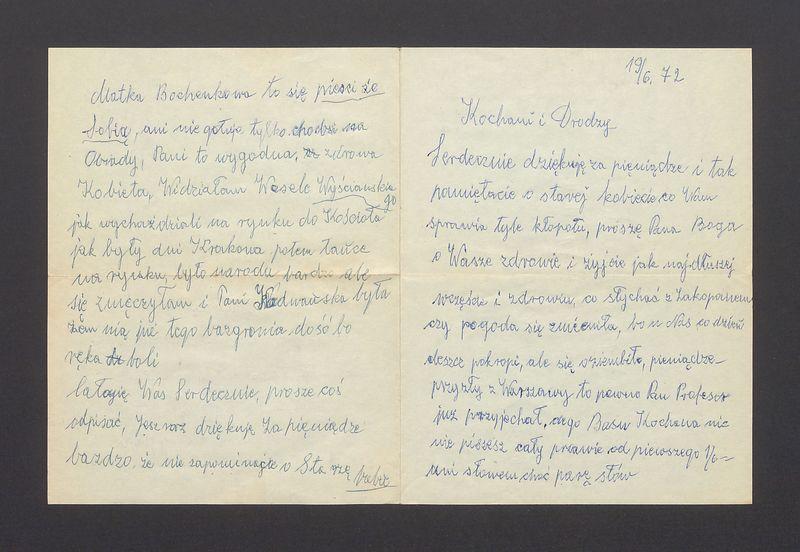 19/6. 72
Kochani i Drodzy
Serdecznie dziękuję za pieniądze i tak
pamiętacie o starej kobiecie, co Wam
sprawia tyle kłopota, proszę Pana Boga
o Wasze zdrowie i żyjcie jak najdłuszej
wczęście i zdrowiu, co słychać z Zakopanem
czy pogoda się zmieniła, bo u Nas co dzień
deszcz pokropi, ale się oziembiło, pieniądze
przyzły z Warszawy to pewno Pan Profesor
już przyjechał, czego Basiu Kochana nic
nie piszesz cały prawie od pierwszego 1/6
ani słowem choć parę słów
Matka Bochenkowa to się pieści ze
Sobią, ani nie gotuje tylko chodzi na
Obiady, Pani to wygodna, zdrowa
Kobieta, Widziałam Wesele Wyścianskiego
jak wychaździali na rynku do Kościoła
jak były dni Krakowa potem tańce
na rynku, było naroda bardzo ale
się zmęczyłam i Pani była
zem nią już tego bazgronia dość bo
ręka boli
Całuję Was Serdecznie, prosze coś
odpisać, Jeszrorz dziękuję za pięniądze
bardzo, że nie zapominacie o Sta rzę
babce